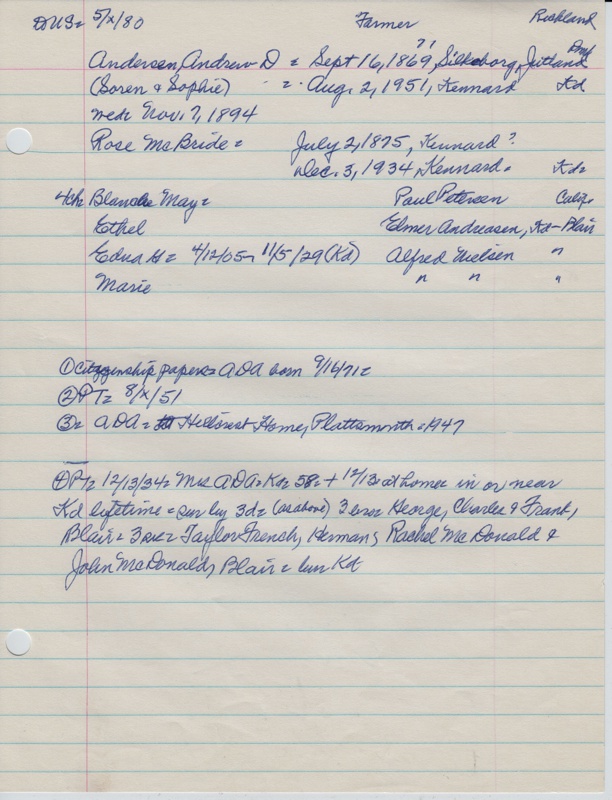 DUS= 5/x/80 Farmer Richland
Andersen, Andrew D = Sept 16, 1869, Silkeborg, Jutland Dmk
71
(Soren & Sophie) = Aug. 2, 1951, Kennard Kd
wed= Nov. 7, 1894
Rose McBride = July 2, 1875, Kennard?
Dec. 3, 1934, Kennard = Kd=
4ch= Blanche May= Paul Petersen Calif.
Ethel Elmer Andreasen, Kd-Blair
Edna H= 4/12/05- 11/5/29 (Kd) Alfred Nielsen "
Marie " " "
① Citizenship papers= ADA born 9/16/71=
② PT= 8/x/51
③= ADA= Hillcrest Home, Plattsmouth =1947
④ PT= 12/13/34= Mrs ADA= Kd= 58= + 12/13 at home= in or near
Kd lifetime = sur by 3d= (as above) 3 bros= George, Charles & Frank,
Blair= 3 = Taylor French, Herman, Rachel McDonald &
John McDonald, Blair= bur Kd